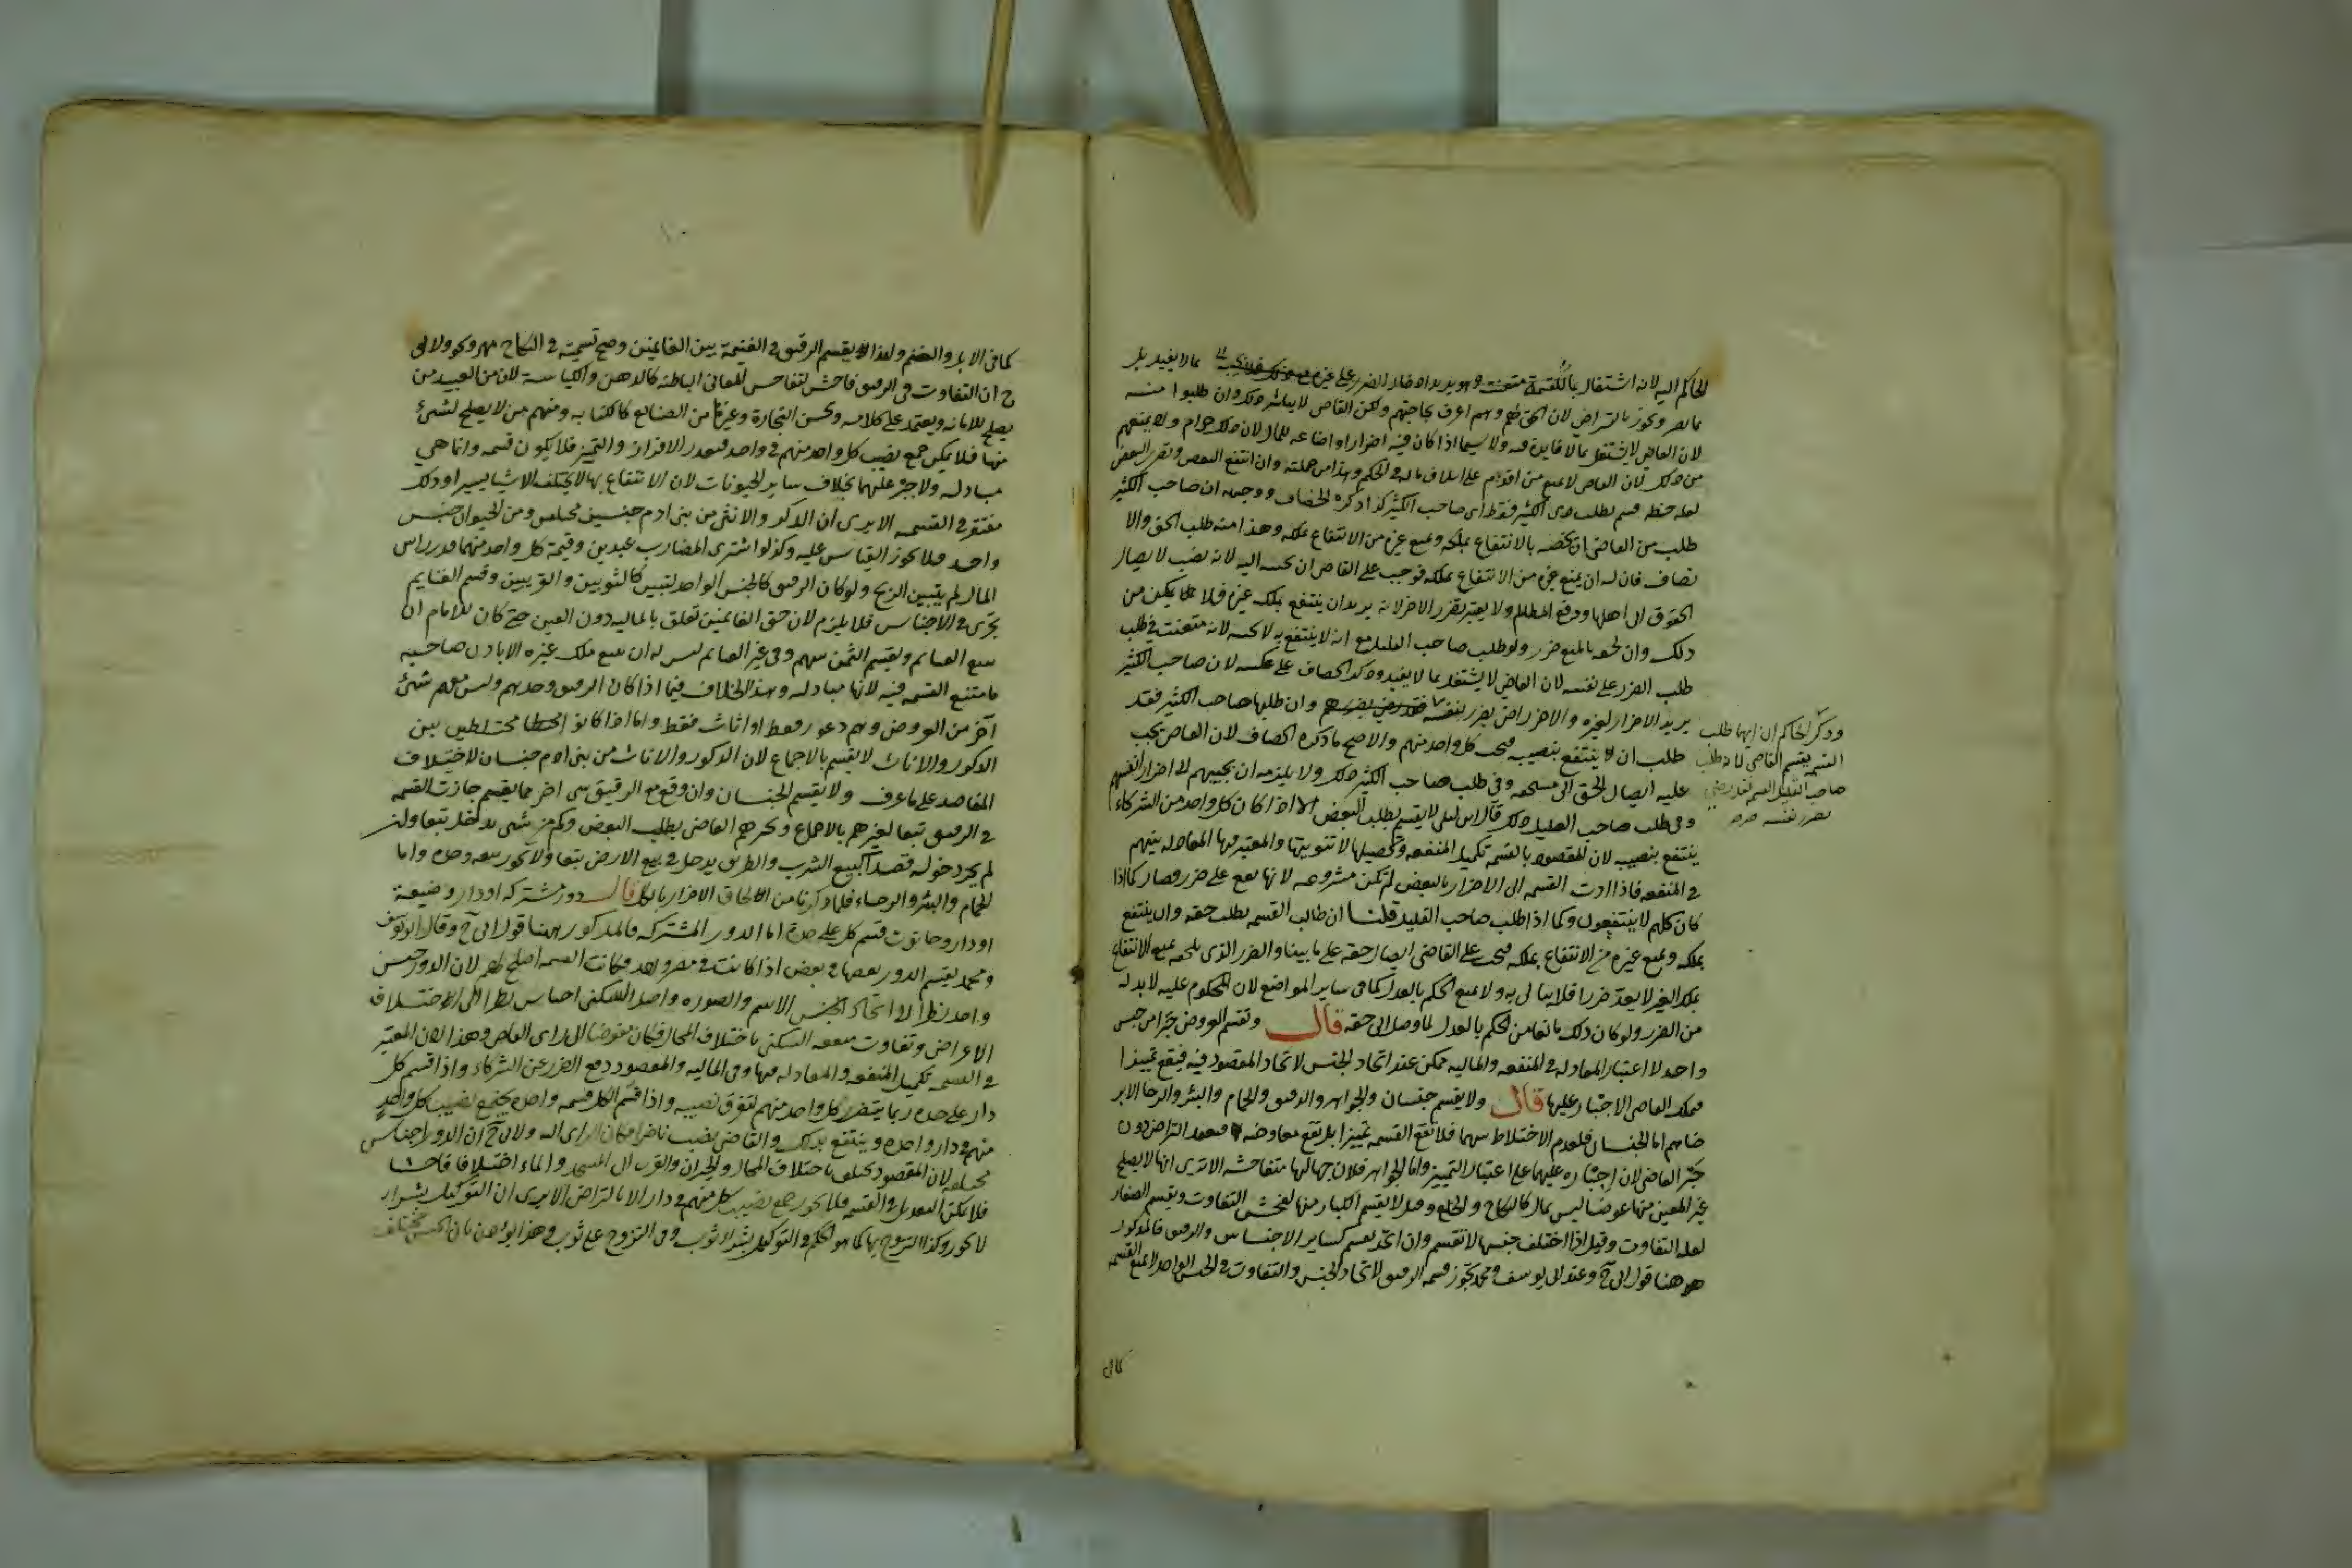 الحاكم اليه لانه اشتغال بالقسمة متعنت وهو يريد ادخال الضرر على غيره بما لا يفيد بل
بما يضر ويجوز بالتراضي لان الحق لهم وهم اعرف بحاجتهم ولكن القاضي لا يباشر ذلك وان طلبوا منه
لان القاضي لا يشتغل بما لا فايدة فيه ولا سيما اذا كان فيه اضرارا واضاعة للمال لان ذلك حرام ولا يمنعهم
من ذلك لان القاضي لا يمنع من اقدم على اتلاف ماله في الحكم وهذا من جملته وان انتفع البعض وتضرر البعض
لقلة حظه قسم بطلب ذي الكثير فقط اي صاحب الكثير كذا ذكره الخصاف ووجهه ان صاحب الكثير
طلب من القاضي ان يخصه بالانتفاع بملكه ويمنع غيره من الانتفاع بملكه وهذا منه طلب الحق والا
نصاف فان له ان يمنع غيره من الانتفاع بملكه فوجب على القاضي ان يجيبه اليه لانه نصب لايصال
الحقوق الى اهلها ودفع المظالم ولا يعتبر تضرر الاخر لانه يريد ان ينتفع بملك غيره فلا يمكن من
ذلك وان لحقه بالمنع ضرر ولو طلب صاحب القليل مع انه لا ينتفع به لا يجيبه لانه متعنت في طلب
طلب الضرر على نفسه لان القاضي لا يشتغل بما لا يفيد وذكر الجصاص على عكسه لان صاحب الكثير
يريد الاضرار لغيره والاخر راض بضرر نفسه وان طلبها صاحب الكثير فقد
طلب ان ينتفع بنصيبه فيجب كل واحد منهم والاصح ما ذكره الخصاف لان القاضي يجب
عليه ايصال الحق الى مستحقه وفي طلب صاحب الكثير ذلك ولا يلزمه ان يجيبهم الى اضرار انفسهم
وفي طلب صاحب القليل ذلك قال ابن ابي ليلى لا يقسم بطلب البعض الا اذا كان كل واحد من الشركاء
ينتفع بنصيبه لان المقصود بالقسمة تكميل المنفعة وتحصيلها لا تفويتها والمعتبر فيها المعادلة بينهم
في المنفعة فاذا ادت القسمة الى الاضرار بالبعض لم تكن مشروعة لانها تقع على ضرر فصار كما اذا
كان كلهم لا ينتفعون وكما اذا طلب صاحب القليل قلنا ان طالب القسمة يطلب حقه وان ينتفع
بملكه ويمنع غيره من الانتفاع بملكه فيجب على القاضي ايصال حقه على ما بينا والضرر الذي يلحقه بمنع الانتفاع
بملك الغير لا يعد ضررا فلا يبالى به ولا يمنع الحكم بالعدل كما في ساير المواضع لان المحكوم عليه لا بد له
من الضرر ولو كان ذلك مانعا من الحكم بالعدل لما وصل الى حقه قال وتقسم العروض جبرا من جنس
واحد لا اعتبار المعادلة في المنفعة والمالية ممكن عند اتحاد الجنس لاتحاد المقصود فيه فيقع تمييزا
فيملك القاضي الاجبار عليها قال ولا يقسم جنسان والجواهر والرقيق والحمام والبئر والرحا الا بر
ضاهم اما الجنسان فلعدم الاختلاط بينهما فلا تقع القسمة تمييزا بل تقع معاوضة فيعتمد التراضي دون
جبر القاضي لان اجباره عليهما على اعتبار التمييز واما الجواهر فلان جهالتها متفاحشة الا ترى انها لا يصلح
غير المعين منها عوضا ليس بمال كالنكاح والخلع وقيل لا يقسم الكبار منها لفحش التفاوت ويقسم الصغار
لقلة التفاوت وقيل اذا اختلف جنسها لا تقسم وان اتحد يقسم كساير الاجناس والرقيق فالمذكور
ههنا قول ابي ح وعند ابي يوسف ومحمد يجوز قسمة الرقيق لاتحاد الجنس والتفاوت في الجنس الواحد لا يمنع القسمة
وذكر الحاكم ان ايهما طلب
القسمة يقسم القاضي لان طلب
صاحب القليل القسمة فقد رضي
بضرر نفسه
كما في
كما في الابل والغنم ولهذا يقسم الرقيق في الغنيمة بين الغانمين وصح تسميته في النكاح مهرا ونحوه ولابي
ح ان التفاوت في الرقيق فاحش لتفاحش المعاني الباطنة كالذهن والكياسة لان من العبيد من
يصلح للامانة ويعتمد على كلامه ويحسن التجارة وغيرها من الصنايع كالكتابة ومنهم من لا يصلح لشيء
منها فلا يمكن جمع نصيب كل واحد منهم في واحد فتعذر الافراز والتمييز فلا يكون قسمة وانما هي
مبادلة ولا جبر عليها بخلاف ساير الحيوانات لان الانتفاع بها لا يختلف الا شيا يسيرا وذلك
مغتفر في القسمة الا يرى ان الذكر والانثى من بني ادم جنسين مختلفين ومن الحيوان جنس
واحد فلا يجوز القياس عليه وكذا لو اشترى المضارب عبدين وقيمة كل واحد منهما قدر راس
المال لم يتبين الربح ولو كان الرقيق كالجنس الواحد لتبين كالثوبين والفرسين وقسم الغنايم
يجري في الاجناس فلا يلزم لان حق الغانمين تعلق بالمالية دون العين حتى كان للامام ان
يبيع الغنايم ويقسم الثمن بينهم وفي غير الغنايم ليس له ان يبيع ملك غيره الا باذن صاحبه
فامتنع القسمة فيه لانها مبادلة وهذا الخلاف فيما اذا كان الرقيق وحدهم وليس معهم شيء
آخر من العروض وهم ذكور فقط او اناث فقط واما اذا كانوا مختلطين بين
الذكور والاناث لا يقسم بالاجماع لان الذكور والاناث من بني ادم جنسان لاختلاف
المقاصد على ما عرف ولا يقسم الجنسان وان وقع مع الرقيق شيء اخر مما يقسم جازت القسمة
في الرقيق تبعا لغيرهم بالاجماع ويجبرهم القاضي بطلب البعض وكم من شيء يدخل تبعا وان
لم يجز دخوله قصدا كبيع الشرب والطريق يدخل في بيع الارض تبعا ولا يجوز بيعه وحده واما
الحمام والبئر والرحاء فلما ذكرنا من الحاق الاضرار بالكل قال دور مشتركة او دار وضيعة
او دار وحانوت قسم كل على حدة اما الدور المشتركة فالمذكور ههنا قول ابي ح وقال ابو يوسف
ومحمد يقسم الدور بعضها في بعض اذا كانت في مصر واحد وكانت القسمة اصلح لهم لان الدور جنس
واحد نظرا الى اتحاد الجنس الاسم والصورة واصل السكنى اجناس نظرا الى اختلاف
الاغراض وتفاوت منفعة السكنى باختلاف المحال فكان مفوضا الى راي القاضي وهذا لان المعتبر
في القسمة تكميل المنفعة والمعادلة فيها وفي المالية والمقصود دفع الضرر عن الشركاء واذا قسم كل
دار على حدة ربما يتضرر كل واحد منهم لتفرق نصيبه واذا قسم الكل قسمة واحدة يجتمع نصيب كل واحد
منهم في دار واحدة وينتفع بذلك والقاضي نصب ناظرا فكان الراي اليه ولابي ح ان الدور اجناس
مختلفة لان المقصود يختلف باختلاف المحال والجيران والقرب الى المسجد والماء اختلافا فاحشا
فلا يمكن التعديل في القسمة فلا يجوز جمع نصيب كل منهم في دار الا بالتراضي الا يرى ان التوكيل بشراء دار
لا يجوز وكذا التزوج بها كما هو الحكم في التوكيل بشراء ثوب وفي التزوج على ثوب وهذا